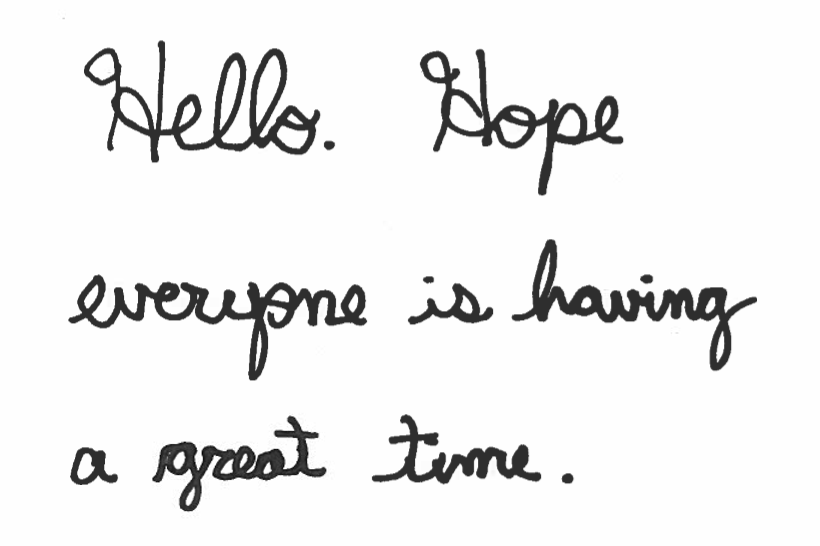 Hello. Hope
everyone is having
a great time.